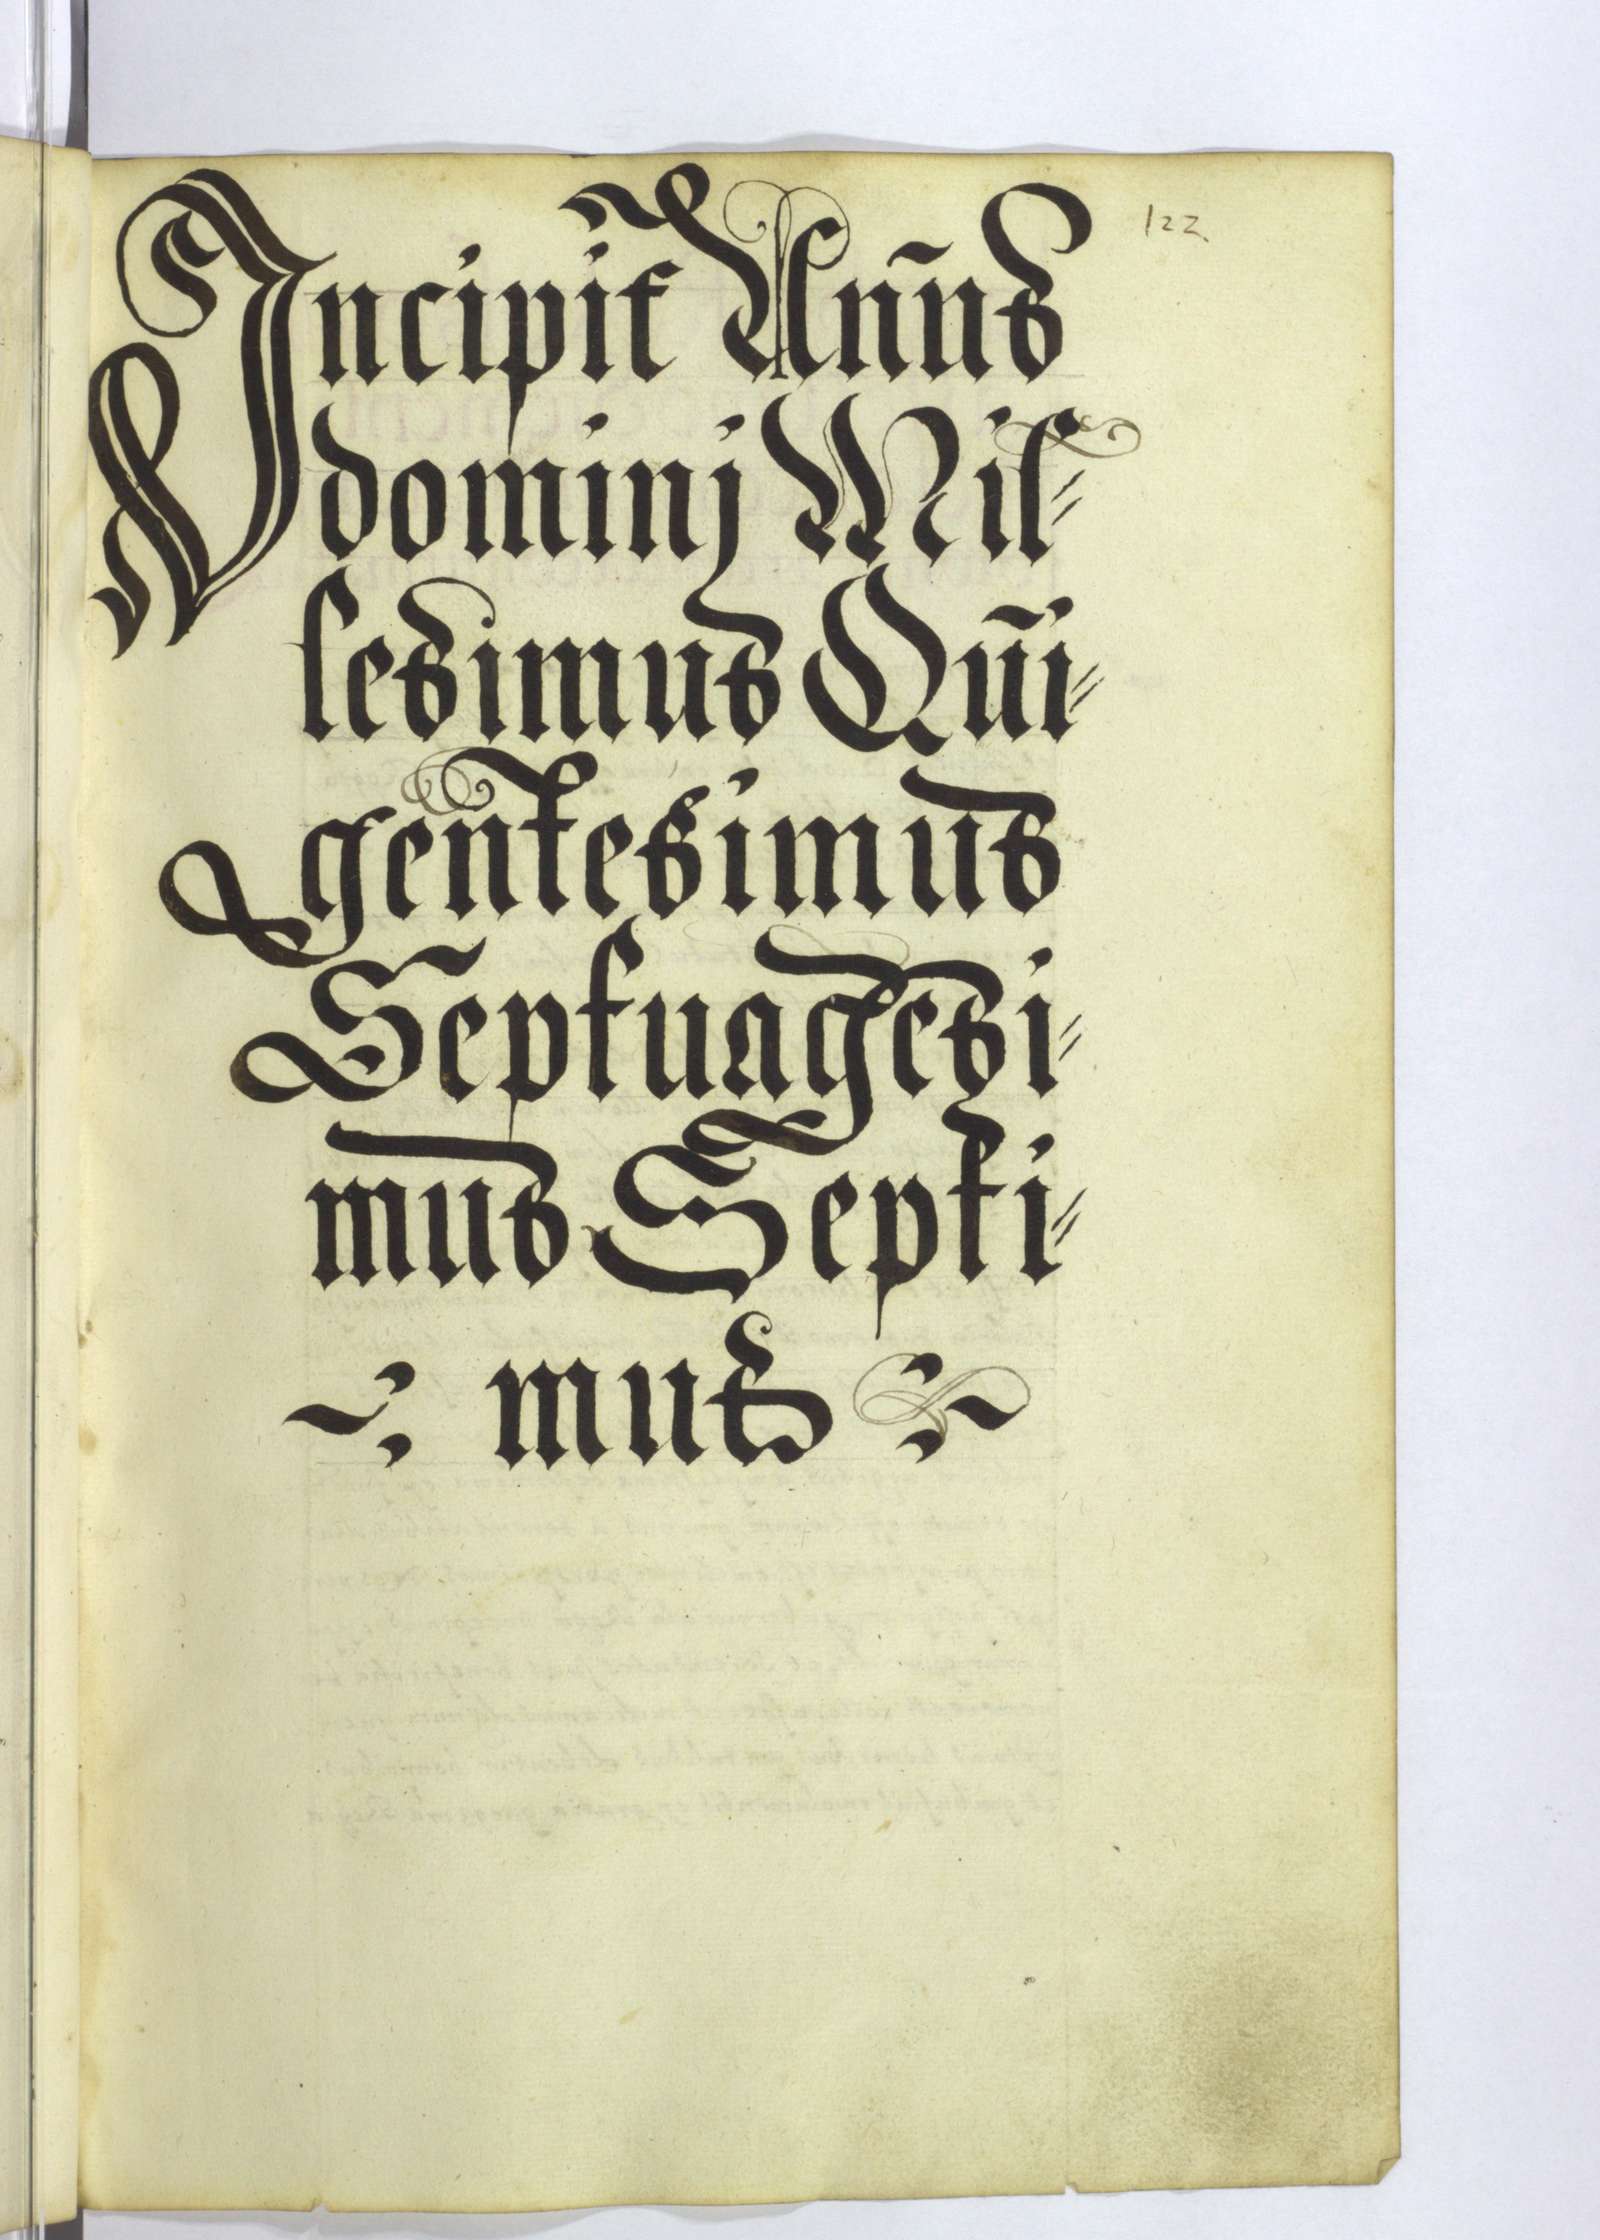 122
Incipit Ann̄us
dominj Mil=
lesimus Qūi=
gentesimus
Septuagesi=
mus Septi=
mus